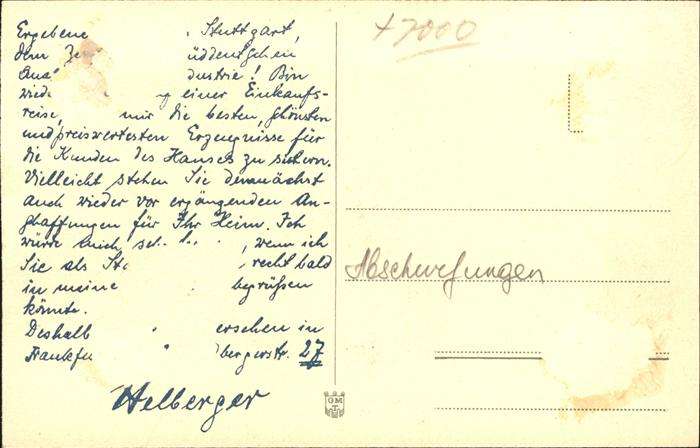 Ergebene Stuttgart,
dem üddeutschen
dustrie! Bin
wied einer Einkaufs-
reise, mir die besten, schönsten
und preiswertesten Erzeugnisse für
die Kunden des Hauses zu sichern.
Vielleicht stehen Sie demnächst
auch wieder vor ergänzenden An-
schaffungen für Ihr Heim. Ich
würde mich, wenn ich
Sie als recht bald
in meine begrüßen
könnte.
Deshalb ersehen in
Frankfu bergerstr. 27
Helberger
+7000
Abschürfungen
OM